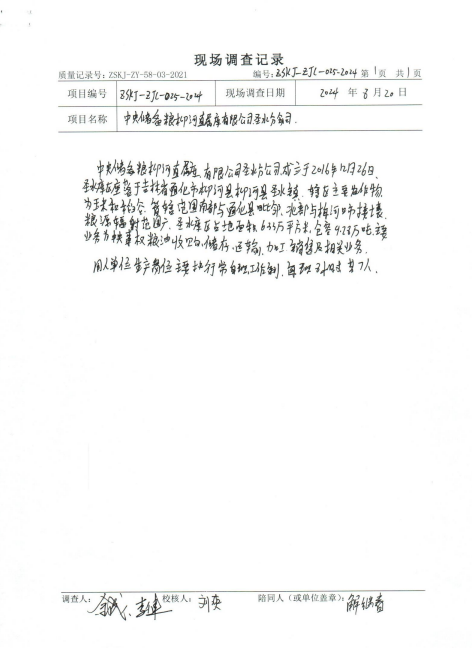 现场调查记录
质量记录号: ZSKJ-ZY-58-03-2021 编号: ZSKJ-ZJC-025-2024 第1页 共1页
项目编号 ZSKJ-ZJC-025-2024 现场调查日期 2024 年 8 月 20 日
项目名称 中央储备粮柳河直属库有限公司圣水分公司.
中央储备粮柳河直属库有限公司圣水分公司成立于2016年12月26日.
圣水库区座落于吉林省通化市柳河县柳河县圣水镇. 辖区主要农作物
为玉米和稻谷. 管辖范围南部与通化县毗邻, 北部与梅河口市接壤,
粮源辐射范围广. 圣水库区占地面积6.35万平方米, 仓容9.28万吨, 主要
业务为政策权粮油收购、储存、运输、加工销售及相关业务.
用人单位生产岗位主要执行常白班工作制, 每班8小时
调查人: 校核人: 刘爽 陪同人（或单位盖章）: